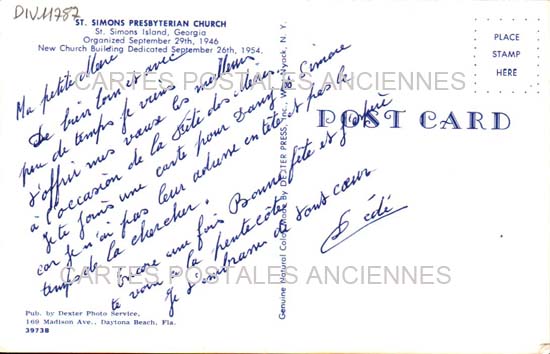 DIV11787
ST. SIMONS PRESBYTERIAN CHURCH
St. Simons Island, Georgia
Organized September 29th, 1946
New Church Building Dedicated September 26th, 1954.
PLACE
STAMP
HERE
POST CARD
Ma petite
De bien loin et avec
peu de temps je veux
t'offrir mes vœux les meilleurs
à l'occasion de la Fête des Mères.
Je te joins une carte pour Dany & Simone
car je n'ai pas leur adresse en tête et pas le
temps de la chercher.
Encore une fois Bonne fête et j'espère
te voir à la pentecôte
Je t'embrasse de tout cœur
Dédé
Genuine Natural Color Made By DEXTER PRESS, Inc., West Nyack, N. Y.
CARTES POSTALES ANCIENNES
CARTES POSTALES ANCIENNES
Pub. by Dexter Photo Service,
169 Madison Ave., Daytona Beach, Fla.
39738